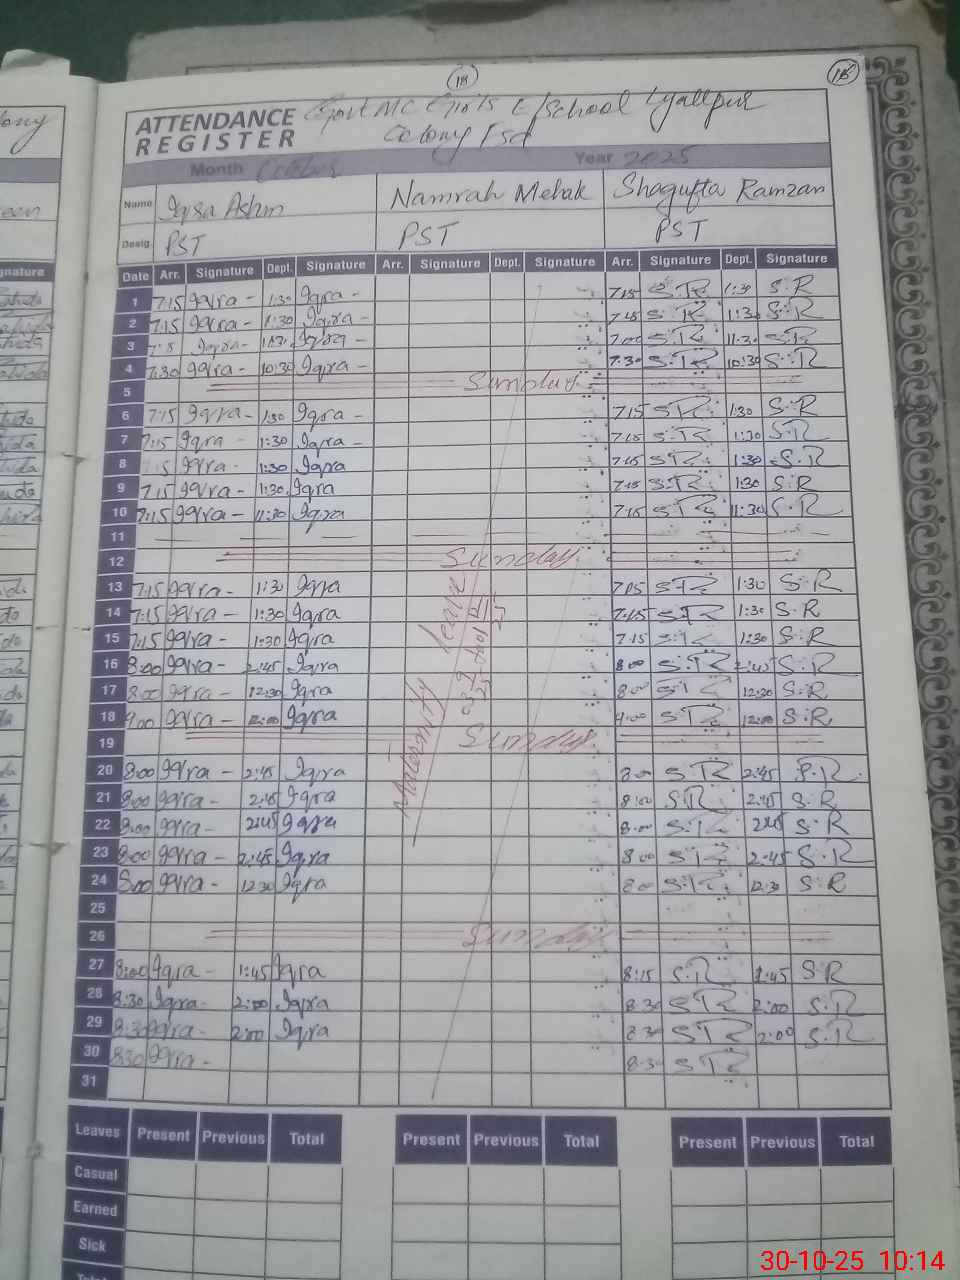 18
18
ATTENDANCE REGISTER Govt MC Girls E/School Lyallpur
Colony Fsd
Month October Year 2025
Name Iqra Namrah Mehak Shagufta Ramzan
Desig. PST PST PST
Date Arr. Signature Dept. Signature Arr. Signature Dept. Signature Arr. Signature Dept. Signature
1 7:15 Iqra - 1:30 Iqra - 7:15 S.R 1:30 S.R
2 7:15 Iqra - 1:30 Iqra - 7:15 S.R 1:30 S.R
3 Iqra - Iqra - 7:00 S.R 11:30 S.R
4 7:30 Iqra - 10:30 Iqra - 7:30 S.R 10:30 S.R
5 Sunday
6 7:15 Iqra - 1:30 Iqra - 7:15 S.R 1:30 S.R
7 7:15 Iqra - 1:30 Iqra - 7:15 S.R 1:30 S.R
8 Iqra - 1:30 Iqra 7:15 S.R 1:30 S.R
9 7:15 Iqra - 1:30 Iqra 7:15 S.R 1:30 S.R
10 7:15 Iqra - 11:30 Iqra 7:15 S.R 11:30 S.R
11
12 Sunday
13 7:15 Iqra 1:30 Iqra 7:15 S.R 1:30 S.R
14 7:15 Iqra - 1:30 Iqra 7:15 S.R 1:30 S.R
15 7:15 Iqra - 1:30 Iqra 7:15 S.R 1:30 S.R
16 8:00 Iqra - 2:45 Iqra 8:00 S.R 2:45 S.R
17 8:00 Iqra - 12:30 Iqra 8:00 S.R 12:30 S.R
18 9:00 Iqra - 12:00 Iqra 9:00 S.R 12:00 S.R
19 Sunday
Maternity Leave
20 8:00 Iqra - 2:45 Iqra 8:00 S.R 2:45 S.R
21 8:00 Iqra - 2:45 Iqra 8:00 S.R 2:45 S.R
22 8:00 Iqra - 2:45 Iqra 8:00 S.R 2:45 S.R
23 8:00 Iqra - 2:45 Iqra 8:00 S.R 2:45 S.R
24 8:00 Iqra - 12:30 Iqra 8:00 S.R 12:30 S.R
25
26 Sunday
27 8:00 Iqra - 1:45 Iqra 8:15 S.R 1:45 S.R
28 8:30 Iqra - 2:00 Iqra 8:30 S.R 2:00 S.R
29 8:30 Iqra - 2:00 Iqra 8:30 S.R 2:00 S.R
30 8:30 Iqra - 8:30 S.R
31
Leaves Present Previous Total Present Previous Total Present Previous Total
Casual
Earned
Sick
30-10-25 10:14